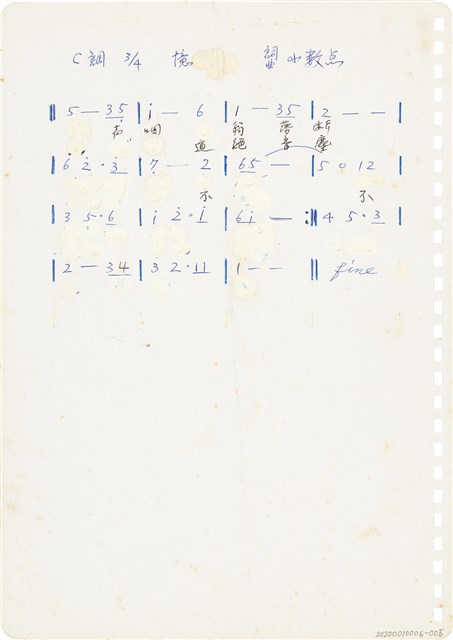 C調 3/4 憶 詞曲 小數点
‖ 5 — 3 5 | i — 6 | 1 — 3 5 | 2 — — |
道 翁絕 夢音 斷塵
6 2 · 3 | 7 — 2 | 6 5 — | 5 0 1 2 |
不 不
3 5 · 6 | i 2 · i | 6 i — :‖ 4 5 · 3 |
2 — 3 4 | 3 2 · 1 1 | 1 — — ‖ fine
20200010006-005